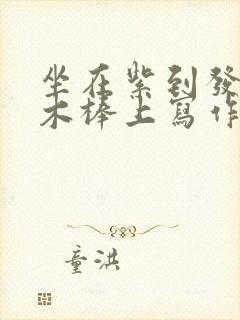 坐在紫到發
木棒上寫作
童洪